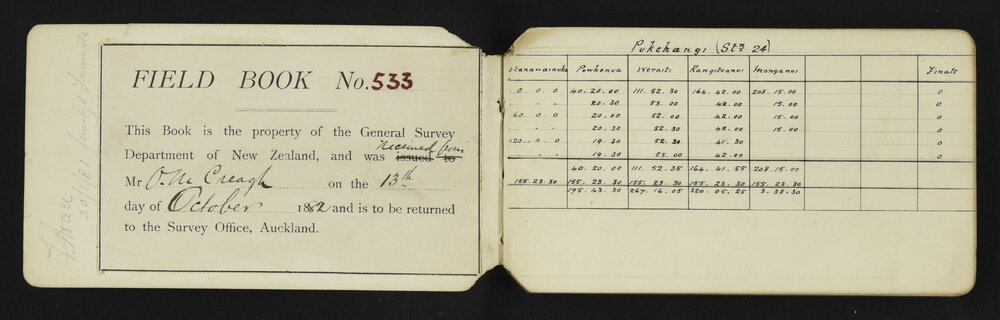 FIELD BOOK No. 533
This Book is the property of the General Survey
Department of New Zealand, and was issued to received from
Mr O. M Creagh on the 13th
day of October 1882 and is to be returned
to the Survey Office, Auckland.
30/1/81
Pukehangi (Stn 24)
otanawainuku Puwhenua Weraiti Rangituanui Monganui Finals
0 0 0 40. 20. 00 111. 52. 30 164. 42. 00 208. 15. 00 0
" " " 20. 30 53. 00 42. 00 15. 00 0
60. 0 0 20. 00 52. 00 42. 00 15. 00 0
" " " 20. 30 52. 30 42. 00 15. 00 0
120. 0 0 19. 30 52. 30 41. 30 0
" " " 19. 30 53. 00 42. 00 0
40. 20. 00 111. 52. 35 164. 41. 55 208. 15. 00
155. 23. 30 155. 23. 30 155. 23. 30 155. 23. 30 155. 23. 30
195. 43. 30 267. 16. 05 320. 05. 25 3. 38. 30